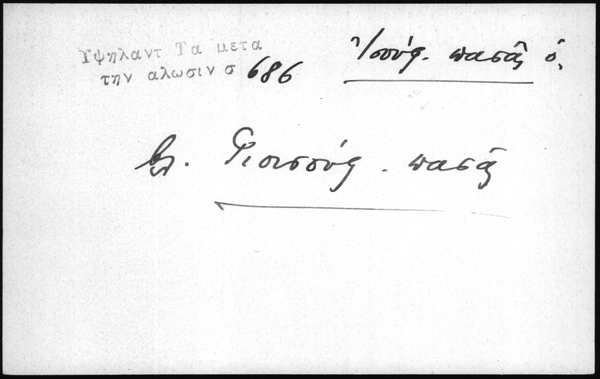 Υψηλαντ Τα μετα
την αλωσιν σ 686
Ἰσούφ. πασᾶς ὁ.
Βλ. Γιουσούφ. πασᾶς